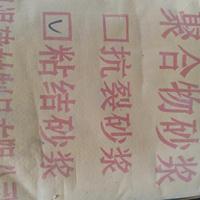 聚合物砂浆
□抗裂砂浆
☑粘结砂浆